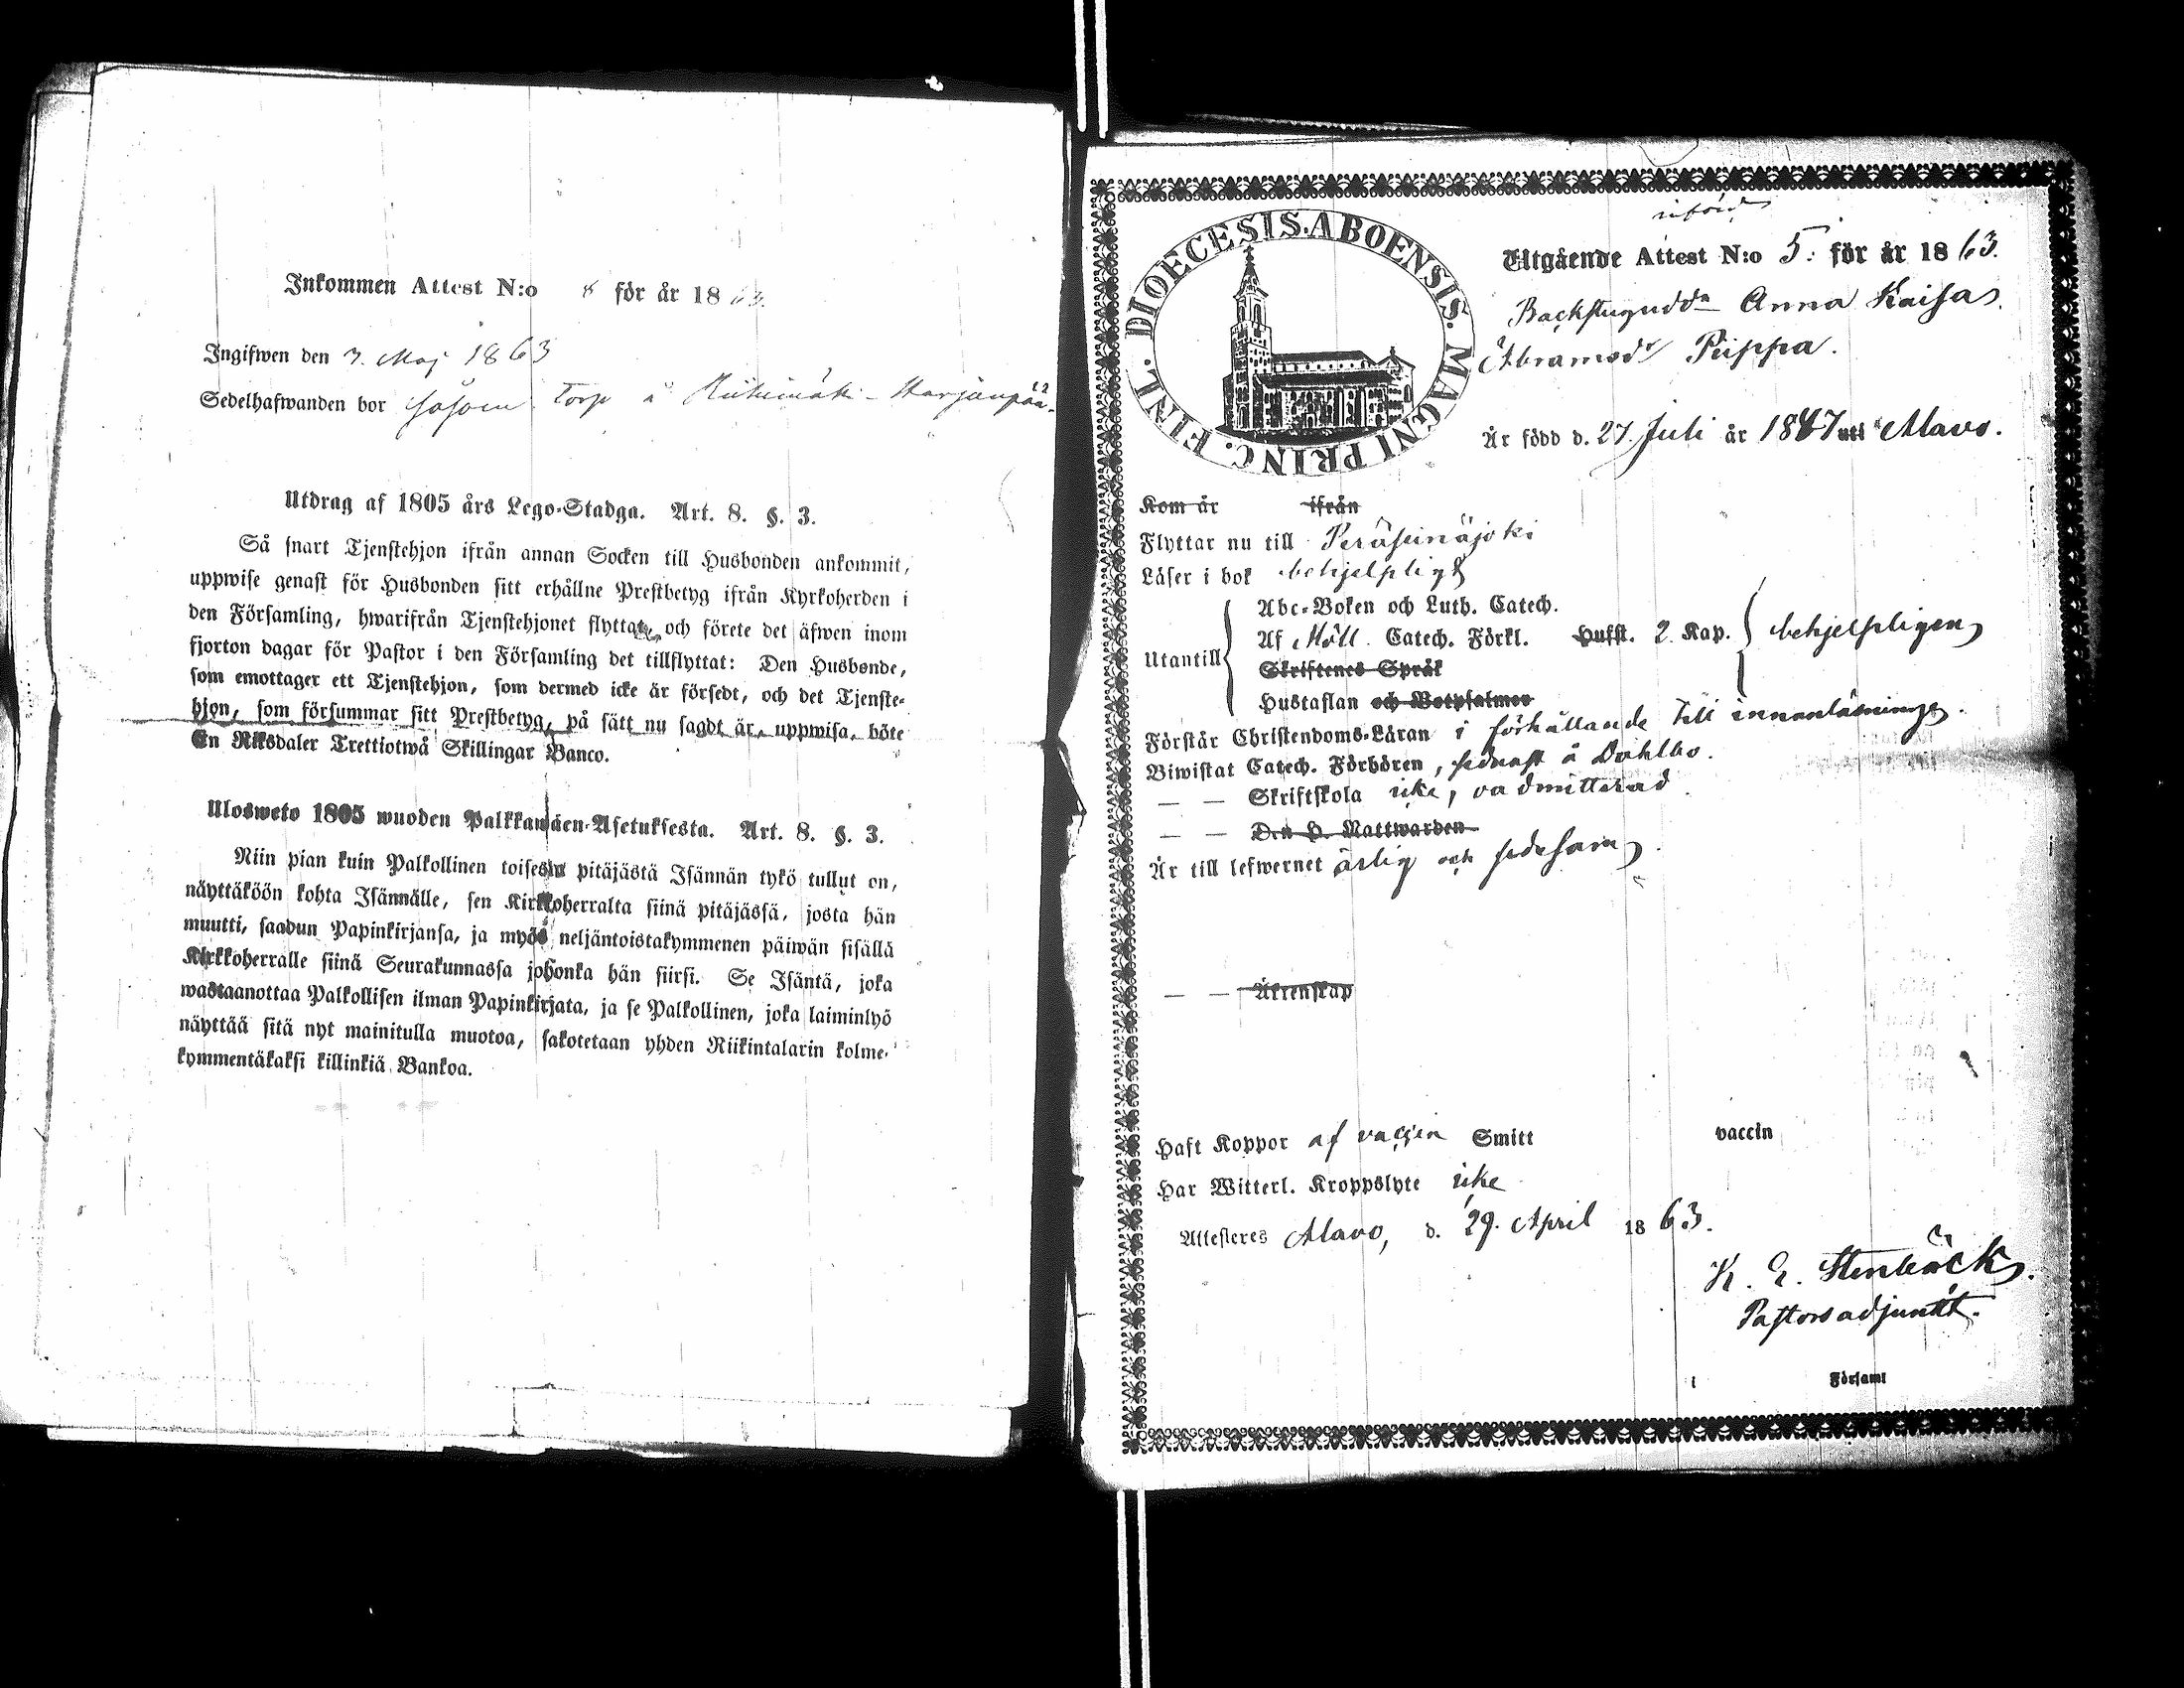 Inkommen Attest N:o 8 för år 1863.
Ingifwen den 3. Maj 1863
Sedelhafwanden bor såsom Torp å Riihimäki-Harjanpää.
Utdrag af 1805 års Lego-Stadga. Art. 8. §. 3.
Så snart Tjenstehjon ifrån annan Socken till Husbonden ankommit,
uppwise genast för Husbonden sitt erhållne Prestbetyg ifrån Kyrkoherden i
den Församling, hwarifrån Tjenstehjonet flyttat, och förete det äfwen inom
fjorton dagar för Pastor i den Församling det tillflyttat: Den Husbonde,
som emottager ett Tjenstehjon, som dermed icke är försedt, och det Tjenste-
hjon, som försummar sitt Prestbetyg, på sätt nu sagdt är, uppwisa, böte
En Riksdaler Trettiotwå Skillingar Banco.
Ulosweto 1805 wuoden Palkkawäen-Asetuksesta. Art. 8. §. 3.
Niin pian kuin Palkollinen toisesta pitäjästä Isännän tykö tullut on,
näyttäköön kohta Isännälle, sen Kirkkoherralta siinä pitäjässä, josta hän
muutti, saadun Papinkirjansa, ja myös neljäntoistakymmenen päiwän sisällä
Kirkkoherralle siinä Seurakunnassa johonka hän siirsi. Se Isäntä, joka
wastaanottaa Palkollisen ilman Papinkirjata, ja se Palkollinen, joka laiminlyö
näyttää sitä nyt mainitulla muotoa, sakotetaan yhden Riikintalarin kolme-
kymmentäkaksi killinkiä Bankoa.
FINL. DIOECESIS. ABOENSIS. MAGNI PRINC.
införd
Utgående Attest N:o 5. för år 1863.
Backstuguddn Anna Kaisa
Abramsdr Piippa.
Är född d. 27. Juli år 1847 uti Alavo.
Kom år ifrån
Flyttar nu till Peräseinäjoki
Läser i bok behjelpligt
Utantill
Abc-Boken och Luth. Catech.
Af Möll. Catech. Förkl. Hufst. 2 Kap. behjelpligen
Skriftenes Språk
Hustaflan och Botpsalmer
Förstår Christendoms-Läran i förhållande till innanläsningen.
Biwistat Catech. Förhören, senast å Dahlbo.
— — Skriftskola icke, oadmitterad.
— — Den H. Nattwarden
Är till lefwernet ärlig och sedesam.
— — Äktenskap
Haft Koppor af vaccin Smitt vaccin
Har Witterl. Kroppslyte icke
Attesteres Alavo, d. 29. April 1863.
K. E. Stenbäck.
Pastorsadjunkt.
i Församl